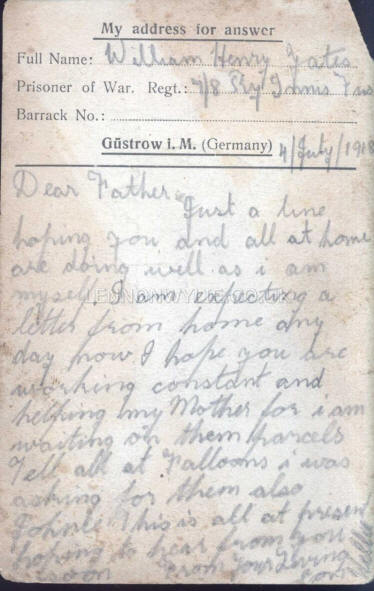 My address for answer
Full Name: William Henry Yates
Prisoner of War. Regt.: 7/8 Ryl Innis Fus
Barrack No.:
Güstrow i. M. (Germany) 4/July/1918
Dear Father
Just a line
hoping you and all at home
are doing well as i am
myself, I am expecting a
letter from home any
day now I hope you are
working constant and
helping my Mother for i am
waiting on them parcels
Tell all at Falloons i was
asking for them also
Johnie This is all at present
hoping to hear from you
soon From Your Loving
Son
LENNONWYLIE.CO.UK